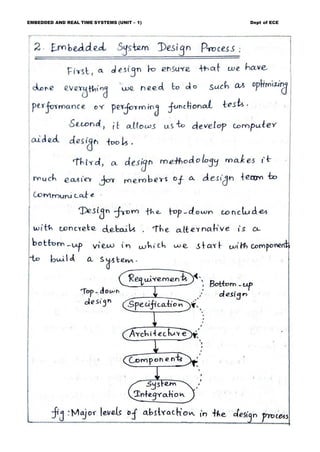 EMBEDDED AND REAL TIME SYSTEMS (UNIT – 1) Dept of ECE
2. Embedded System Design Process :
First, a design to ensure that we have
done everything we need to do such as optimizing
performance or performing functional tests.
Second, it allows us to develop computer
aided design tools.
Third, a design methodology makes it
much easier for members of a design team to
communicate.
Design from the top-down concludes
with concrete details. The alternative is a
bottom-up view in which we start with components
to build a system.
Requirements
Top-down design
Bottom-up design
Specification
Architecture
Components
System Integration
fig : Major levels of abstraction in the design process